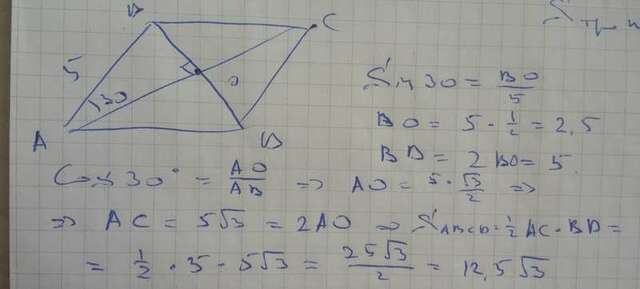 S тр
B
C
5
30
O
A
D
Sin 30 = BO/5
BO = 5 · 1/2 = 2,5
BD = 2 BO = 5
Cos 30° = AO/AB => AO = 5·√3/2 =>
=> AC = 5√3 = 2AO => S ABCD = 1/2 AC · BD =
= 1/2 · 5 · 5√3 = 25√3/2 = 12,5√3